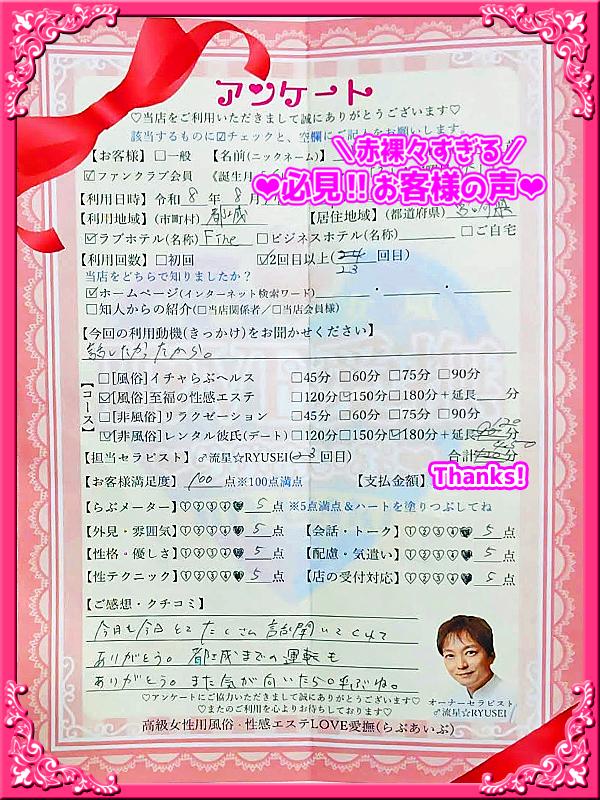 アンケート
♡当店をご利用いただきまして誠にありがとうございます♡
該当するものに☑チェックと、空欄にご記入をお願いします。
\赤裸々すぎる/
【お客様】□一般 【名前(ニックネーム)】
❤必見!!お客様の声❤
☑ファンクラブ会員 《誕生月
【利用日時】令和 8 年 8 月
【利用地域】(市町村) 都城 【居住地域】(都道府県) 宮崎県
☑ラブホテル(名称) Fine □ビジネスホテル(名称) □ご自宅
【利用回数】□初回 ☑2回目以上(24 回目)
23
当店をどちらで知りましたか?
☑ホームページ(インターネット検索ワード) ・ ・
□知人からの紹介(□当店関係者/□当店会員様)
【今回の利用動機(きっかけ)をお聞かせください】
話したかったから。
【コース】
□[風俗]イチャらぶヘルス □45分 □60分 □75分 □90分
☑[風俗]至福の性感エステ □120分 ☑150分 □180分+延長 分
□[非風俗]リラクゼーション □45分 □60分 □75分 □90分
☑[非風俗]レンタル彼氏(デート) □120分 □150分 ☑180分+延長 分
【担当セラピスト】♂流星☆RYUSEI(23回目) 合計 分
【お客様満足度】 100 点※100点満点 【支払金額】
Thanks!
【らぶメーター】①②③④♥ 5 点 ※5点満点&ハートを塗りつぶしてね
【外見・雰囲気】①②③④♥ 5 点 【会話・トーク】①②③④♥ 5 点
【性格・優しさ】①②③④♥ 5 点 【配慮・気遣い】①②③④♥ 5 点
【性テクニック】①②③④♥ 5 点 【店の受付対応】①②③④♥ 5 点
【ご感想・クチコミ】
今月も今日とてたくさん話を聞いてくれて
ありがとう。都城までの運転も
ありがとう。また気が向いたら呼ぶね。
♡アンケートにご協力いただきまして誠にありがとうございます♡
♡またのご利用を心よりお待ちしております♡
オーナーセラピスト
♂流星☆RYUSEI
高級女性用風俗・性感エステLOVE愛撫(らぶあいぶ)